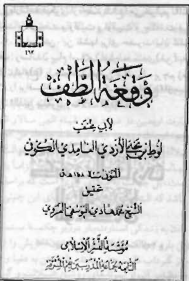 ٤٦٣
وقعة الطف
لأبي مخنف
لوط بن يحيى الأزدي الغامدي الكوفي
المتوفى سنة ١٥٨ هـ
تحقيق
الشيخ محمد هادي اليوسفي الغروي
مؤسسة النشر الإسلامي
التابعة لجماعة المدرسين بقم المشرفة